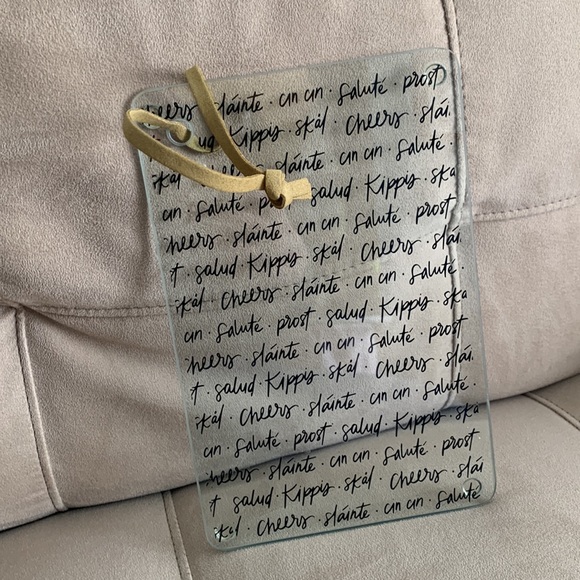 cheers · sláinte · cin cin · Saluté · prost
ud · Kippis · skål · Cheers · slái
skål · eers · sláinte · cin cin · Saluté ·
cin · Saluté · p · salud · Kippis · ska
cheers · sláinte · cin cin · Saluté · prost
t · salud · Kippis · skål · Cheers · slái
skål · Cheers · sláinte · cin cin · Saluté ·
cin · Saluté · prost · salud · Kippis · ska
cheers · sláinte · cin cin · Saluté · prost
t · salud · Kippis · skål · Cheers · slái
skål · Cheers · sláinte · cin cin · Saluté
cin · Saluté · prost · salud · Kippis · ska
cheers · sláinte · cin cin · Saluté · prost
t · salud · Kippis · skål · Cheers · slái
skål · Cheers · sláinte · cin cin · Saluté